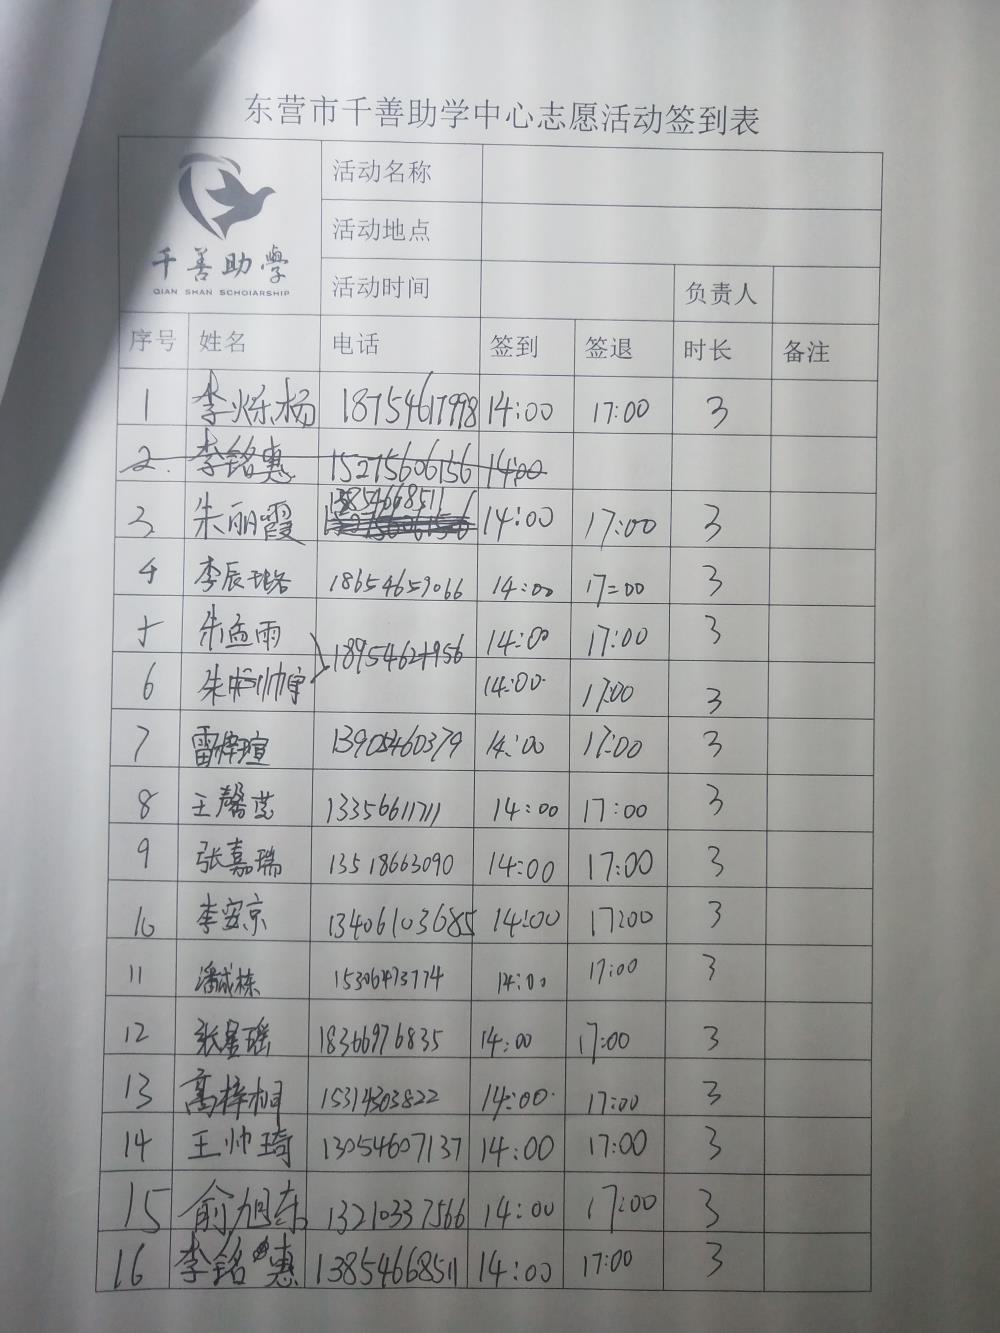 东营市千善助学中心志愿活动签到表
千善助学
QIAN SHAN SCHOIARSHIP
活动名称
活动地点
活动时间 负责人
序号 姓名 电话 签到 签退 时长 备注
1 李烁杨 18754617998 14:00 17:00 3
2. 李铭惠 15275606156 14:00
13854668511
3 朱丽霞 15275606156 14:00 17:00 3
4 李辰 18654659066 14:00 17:00 3
5 朱孟雨 14:00 17:00 3
6 朱 14:00 17:00 3
7 雷梓瑄 13905460379 14:00 17:00 3
8 王馨艺 13356611711 14:00 17:00 3
9 张嘉瑞 13518663090 14:00 17:00 3
10 李安京 13406103685 14:00 17:00 3
11 潘成栋 15306473774 14:00 17:00 3
12 张星瑶 18366976835 14:00 17:00 3
13 高梓桐 15314303822 14:00 17:00 3
14 王帅琦 13054607137 14:00 17:00 3
15 俞旭东 13210337566 14:00 17:00 3
16 李铭惠 13854668511 14:00 17:00 3